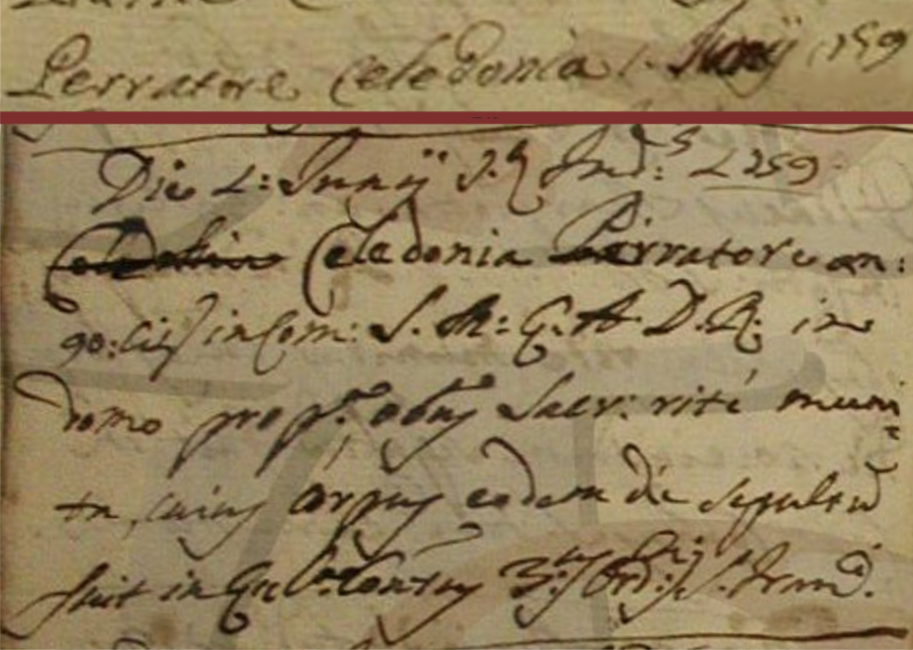 Perratore Celedonia 1. Junÿ 1759
Die 1: Junÿ 7.ę Ind:ˢ 1759
Celedonia Perratore an:
90: cir in Com: S. M: E. A. D. R. in
domo propr. obijt Sacr: rité muni
ta, cuius corpus eodem die sepultũ
fuit in Conventus 3.ij Ord:s S. Fran.